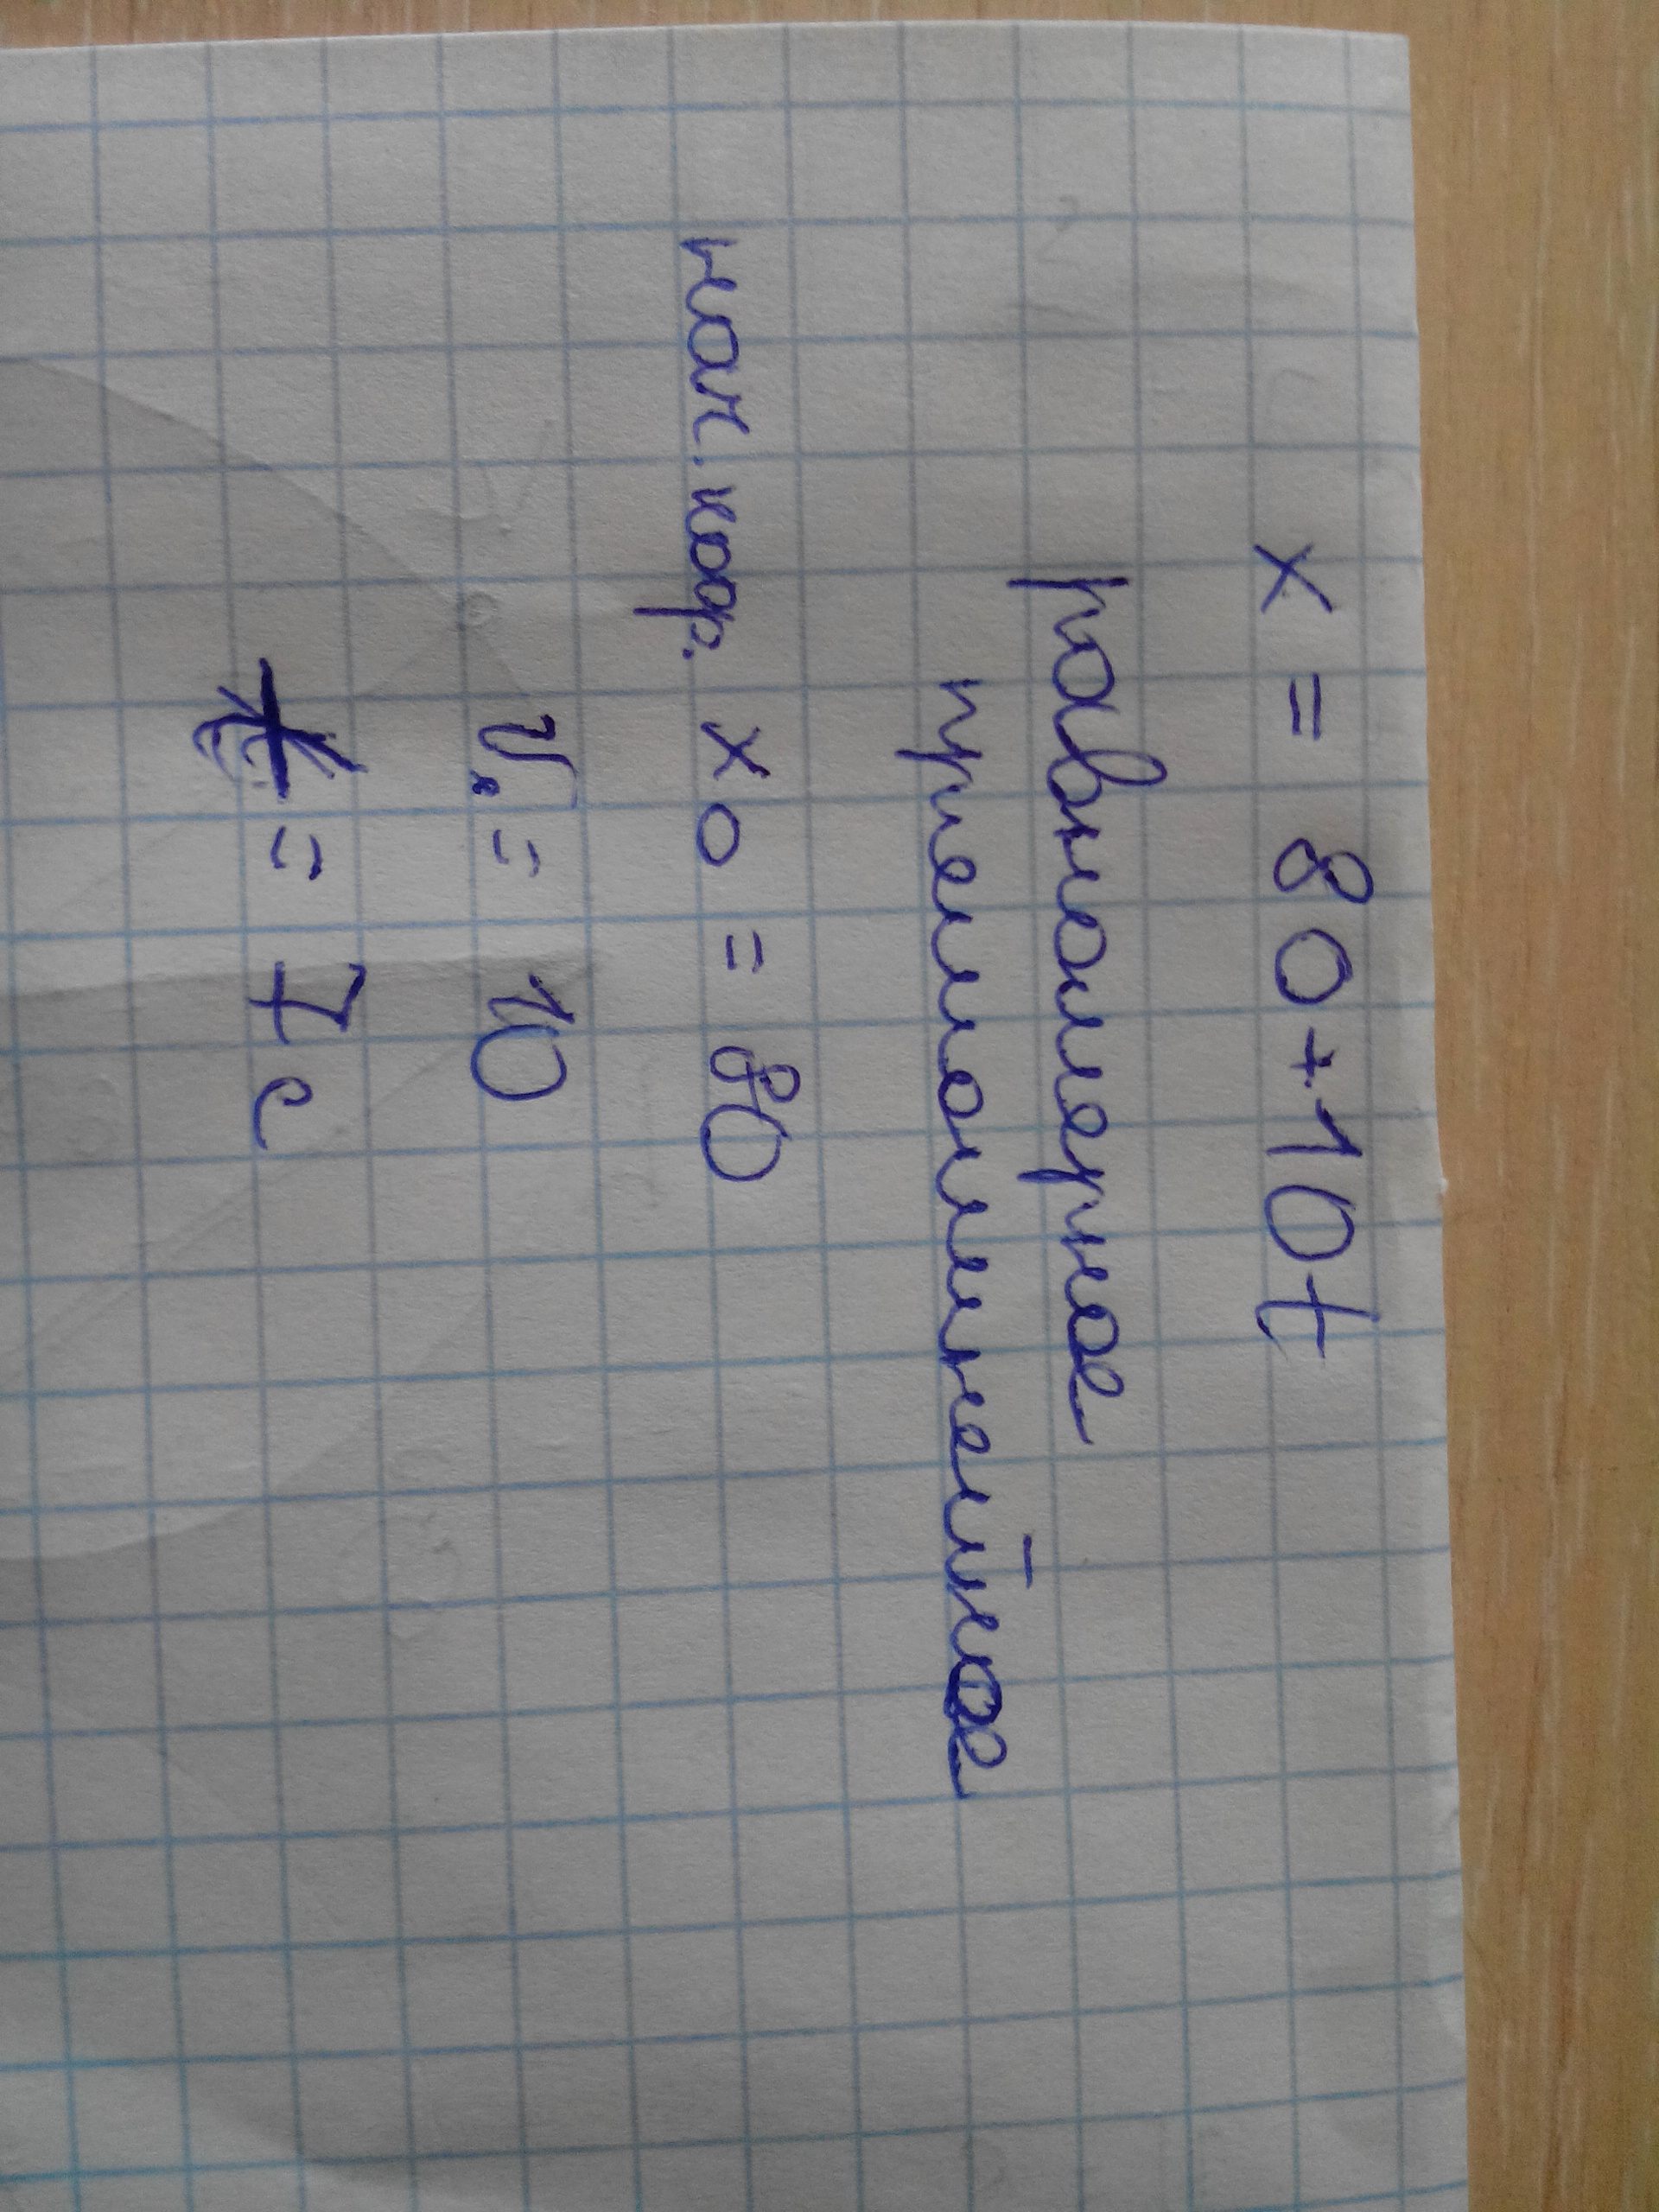 x = 80+10t
равномерное
премоминейное
нач. кор. x0 = 80
v. = 10
= 7 с